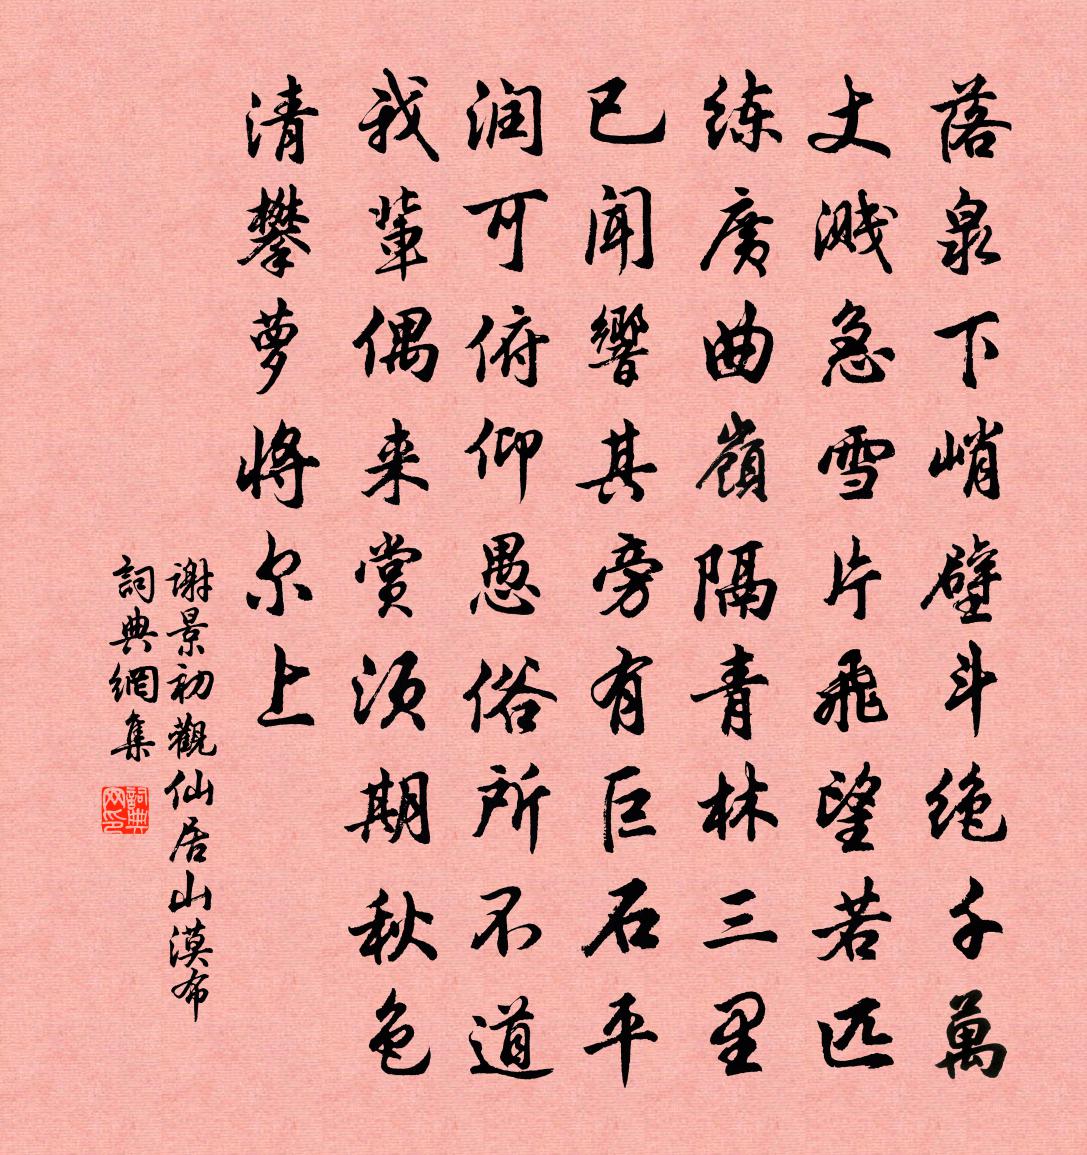 落泉下峭壁斗绝千萬
丈溅急雪片飛望若匹
练广曲嶺隔青林三里
已闻響其旁有巨石平
润可俯仰愚俗所不道
我輩偶来赏须期秋色
清攀萝将尔上
谢景初觀仙居山漠布
詞典網集
詞典